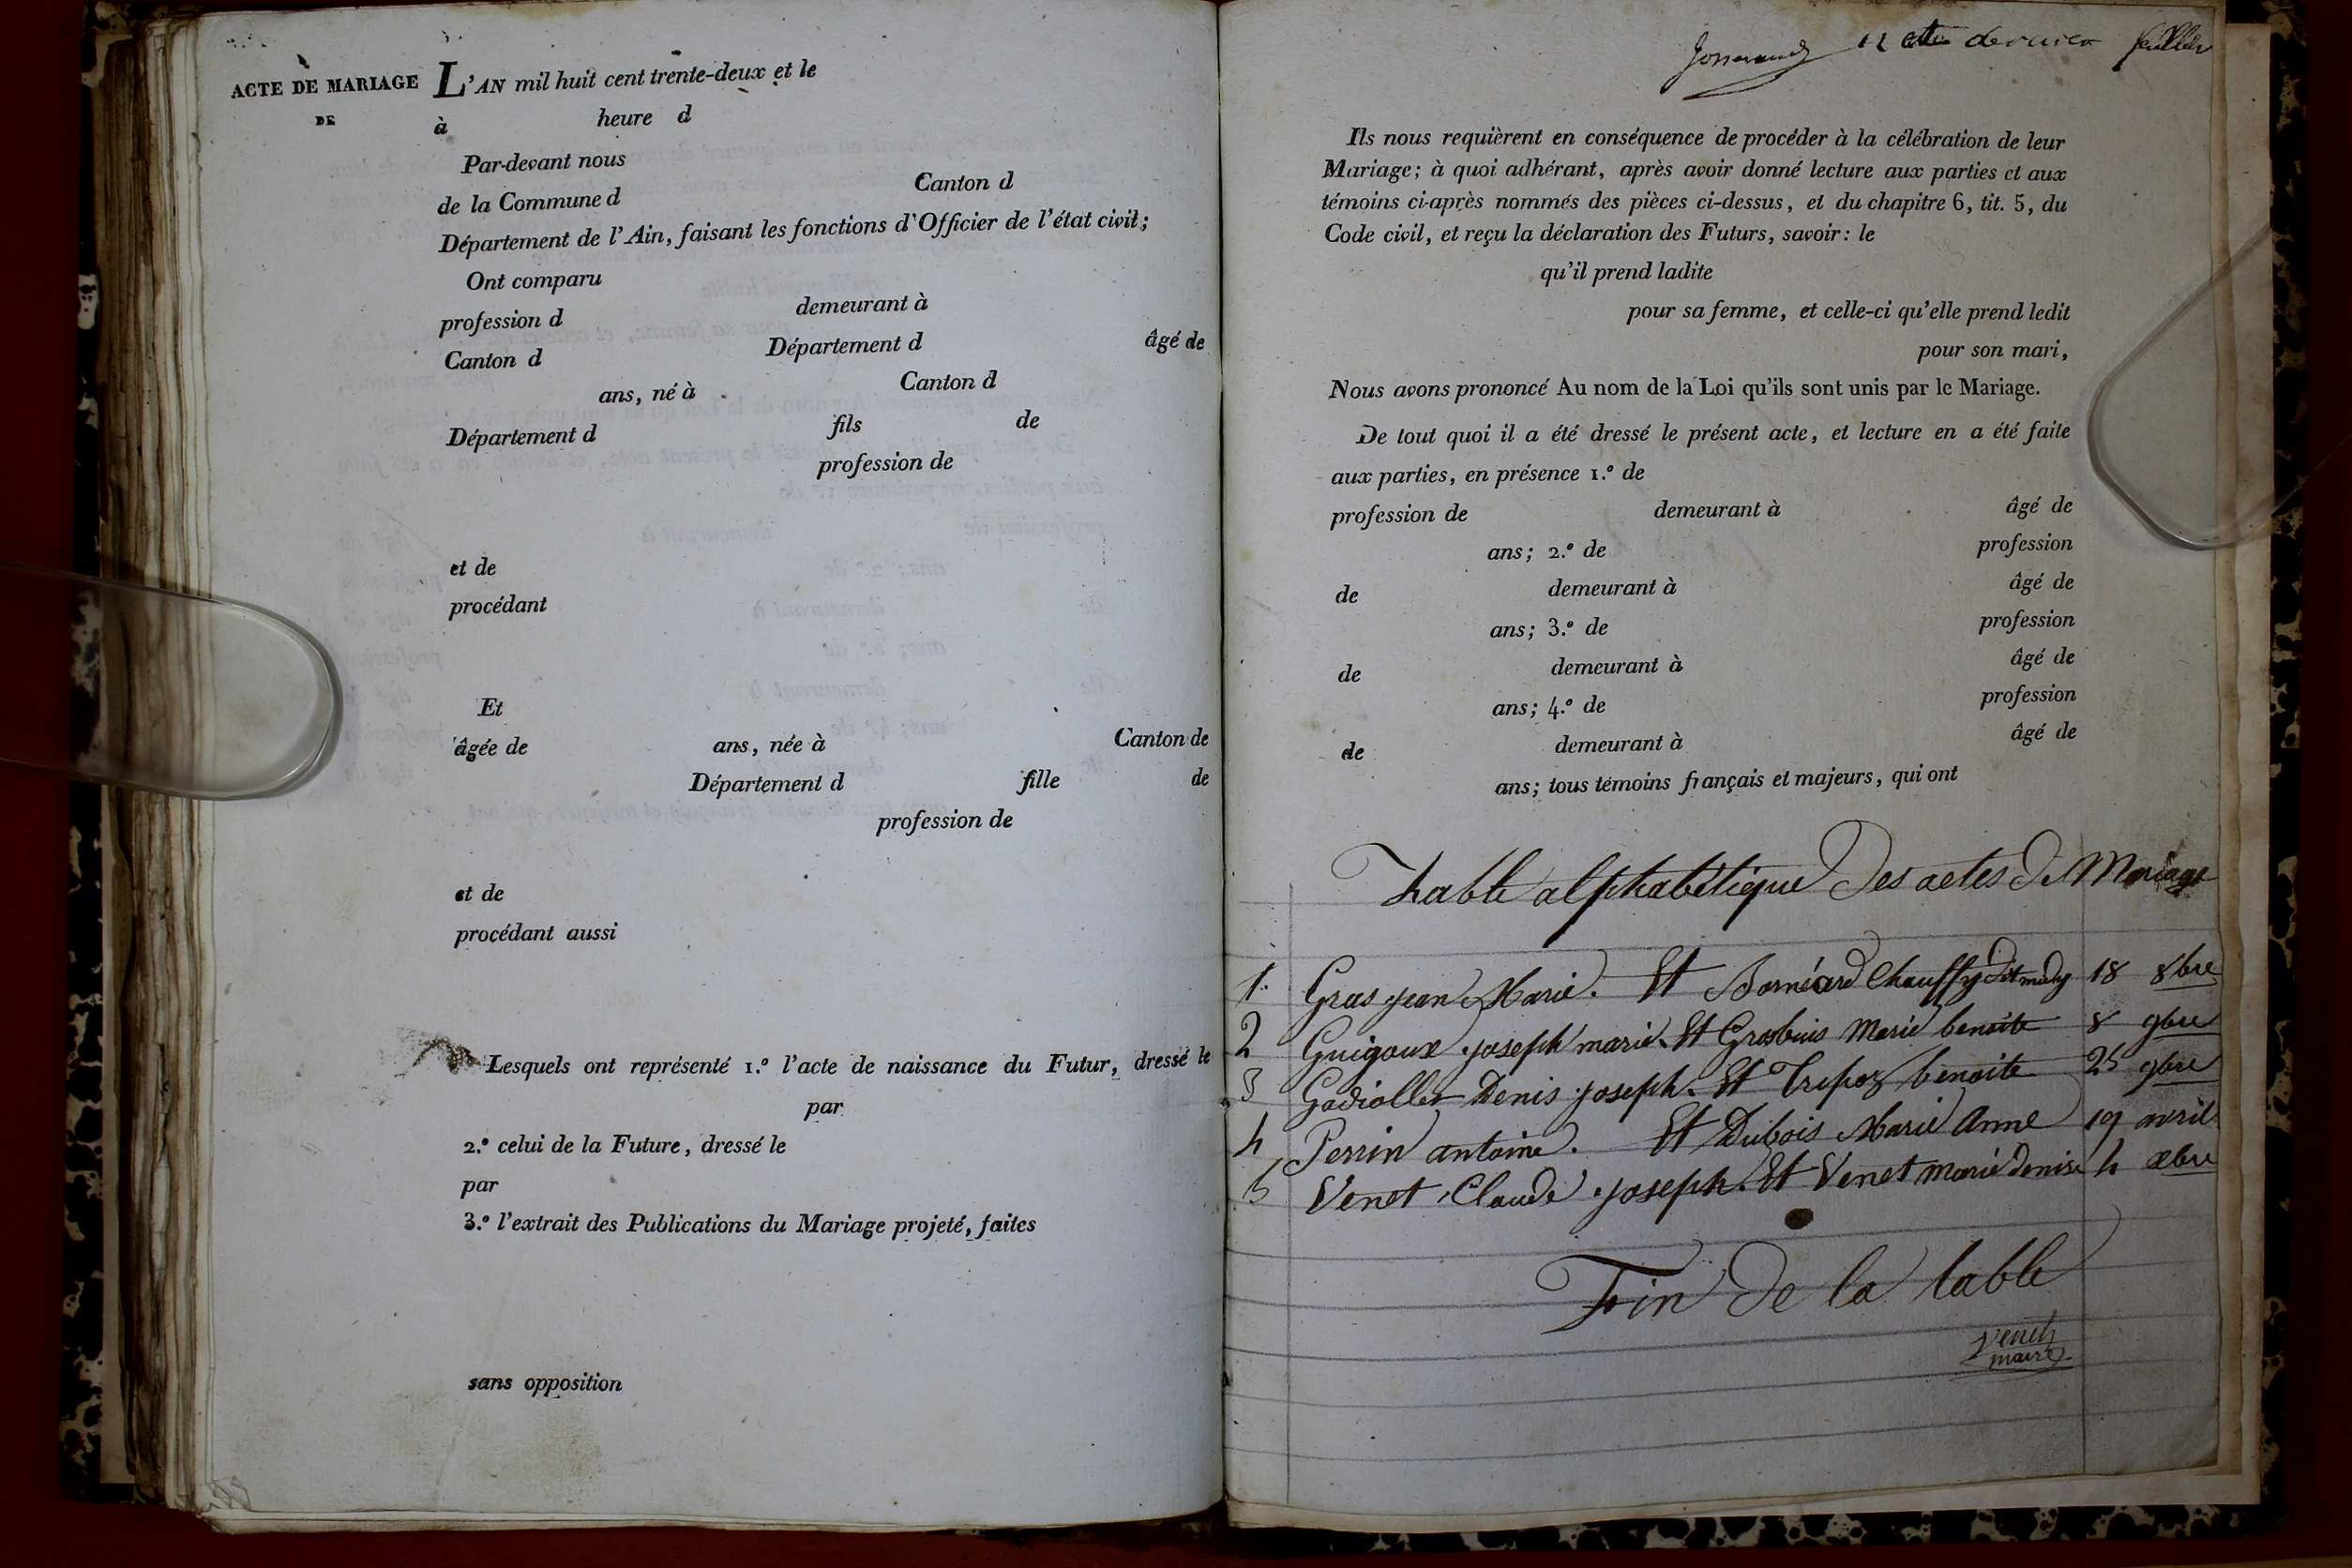 ACTE DE MARIAGE
DE
L'AN mil huit cent trente-deux et le
à heure d
Par-devant nous
de la Commune d Canton d
Département de l'Ain, faisant les fonctions d'Officier de l'état civil;
Ont comparu
profession d demeurant à
Canton d Département d âgé de
ans, né à Canton d
Département d fils de
profession de
et de
procédant
Et
âgée de ans, née à Canton de
Département d fille de
profession de
et de
procédant aussi
Lesquels ont représenté 1.º l'acte de naissance du Futur, dressé le
par
2.º celui de la Future, dressé le
par
3.º l'extrait des Publications du Mariage projeté, faites
sans opposition
12 et dernier feuillet
Ils nous requièrent en conséquence de procéder à la célébration de leur
Mariage; à quoi adhérant, après avoir donné lecture aux parties et aux
témoins ci-après nommés des pièces ci-dessus, et du chapitre 6, tit. 5, du
Code civil, et reçu la déclaration des Futurs, savoir: le
qu'il prend ladite
pour sa femme, et celle-ci qu'elle prend ledit
pour son mari,
Nous avons prononcé Au nom de la Loi qu'ils sont unis par le Mariage.
De tout quoi il a été dressé le présent acte, et lecture en a été faite
aux parties, en présence 1.º de
profession de demeurant à âgé de
ans; 2.º de profession
de demeurant à âgé de
ans; 3.º de profession
de demeurant à âgé de
ans; 4.º de profession
de demeurant à âgé de
ans; tous témoins français et majeurs, qui ont
Table alphabétique Des actes De Mariage
1. Gras jean Marie. Et Bornéard Chauffy dit 18 8bre
2 Guigoux joseph marie. Et Grosbuis Marie benoite 8 9bre
3 Gadiollet Denis joseph. Et Tripoz benoite 25 9bre
4 Perrin antoine. Et Dubois Marie Anne 19 avril
5 Venet Claude joseph. Et Venet marie denise 4 xbre
Fin De la table
Venet
maire